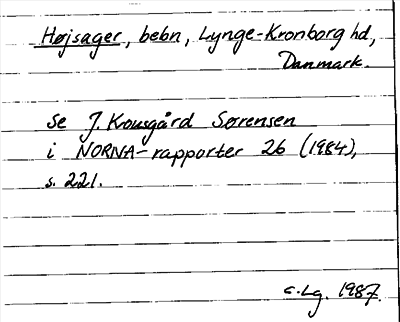 Højsager, bebn, Lynge-Kronborg hd,
Danmark.
Se J. Kousgård Sørensen
i NORNA-rapporter 26 (1984),
s. 221.
C.Lg. 1987.